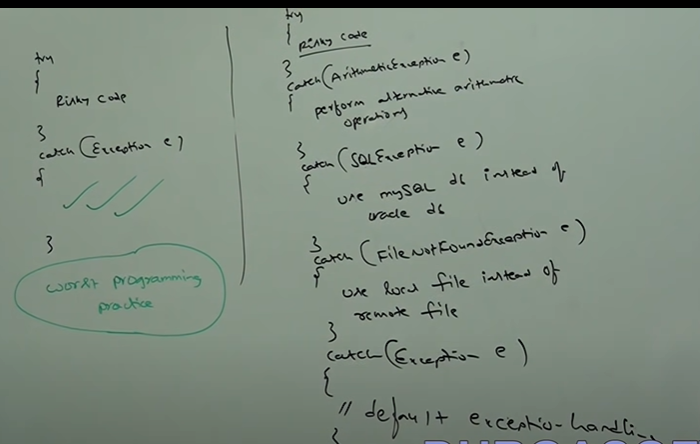 try
{
Risky code
}
catch(Exception e)
{
}
worst programming
practice
try
{
Risky code
}
catch(ArithmeticException e)
{
perform alternative arithmetic
operations
}
catch(SQLException e)
{
use mySQL db instead of
oracle db
}
catch(FileNotFoundException e)
{
use local file instead of
remote file
}
catch(Exception e)
{
// default exception-handlin
}